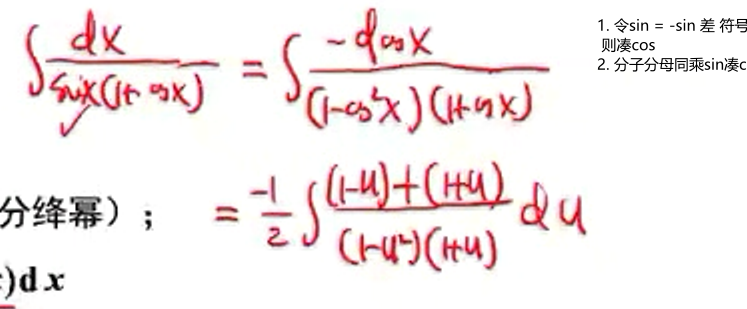 ∫ dx / sinx(1+cosx) = ∫ -dcosx / (1-cos²x)(1+cosx)
1. 令sin = -sin 差 符号
则凑cos
2. 分子分母同乘sin凑c
分绛幂）； = -1/2 ∫ (1-u)+(1+u) / (1-u²)(1+u) du
)dx